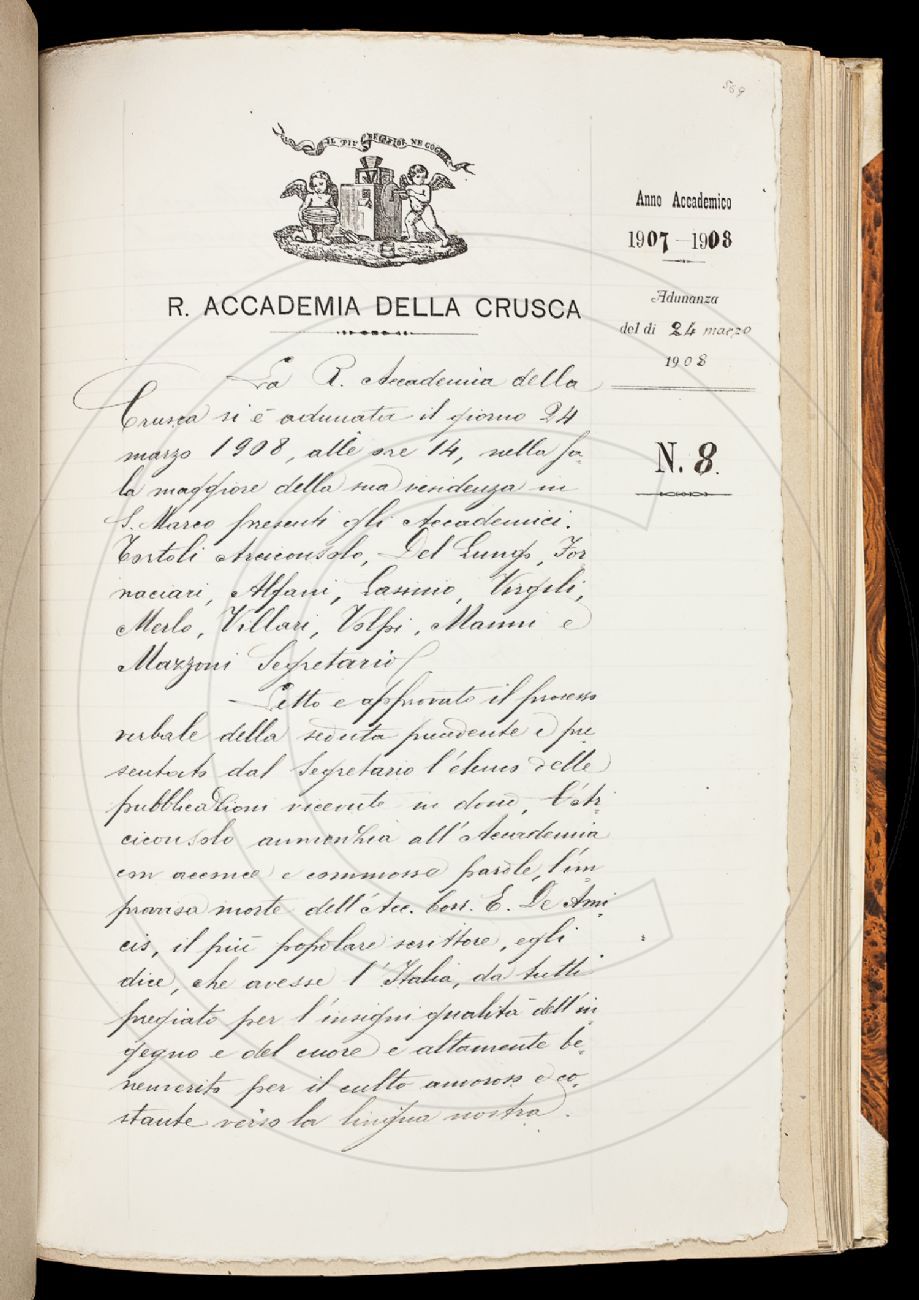 569
IL PIÙ BEL FIOR NE COGLIE
Anno Accademico
1907-1908
Adunanza
del dì 24 marzo
1908
N. 8.
R. ACCADEMIA DELLA CRUSCA
La R. Accademia della
Crusca si è adunata il giorno 24
marzo 1908, alle ore 14, nella sa-
la maggiore della sua residenza in
S. Marco presenti gli Accademici:
Tortoli Arciconsolo, Del Lungo, For
naciari, Alfani, Lasinio, Virgili,
Merlo, Villari, Volpi, Manni e
Mazzoni Segretario
Letto e approvato il processo
verbale della seduta precedente e pre-
sentato dal Segretario l'elenco delle
pubblicazioni ricevute in dono, l'Ar-
ciconsolo annunzia all'Accademia
con acconce e commosse parole, l'im-
provvisa morte dell'Acc. Corr. E. De Ami-
cis, il più popolare scrittore, egli
dice, che avesse l'Italia, da tutti
pregiato per l'insigni qualità dell'in-
gegno e del cuore e altamente be-
nemerito per il culto amoroso e co-
stante verso la lingua nostra.